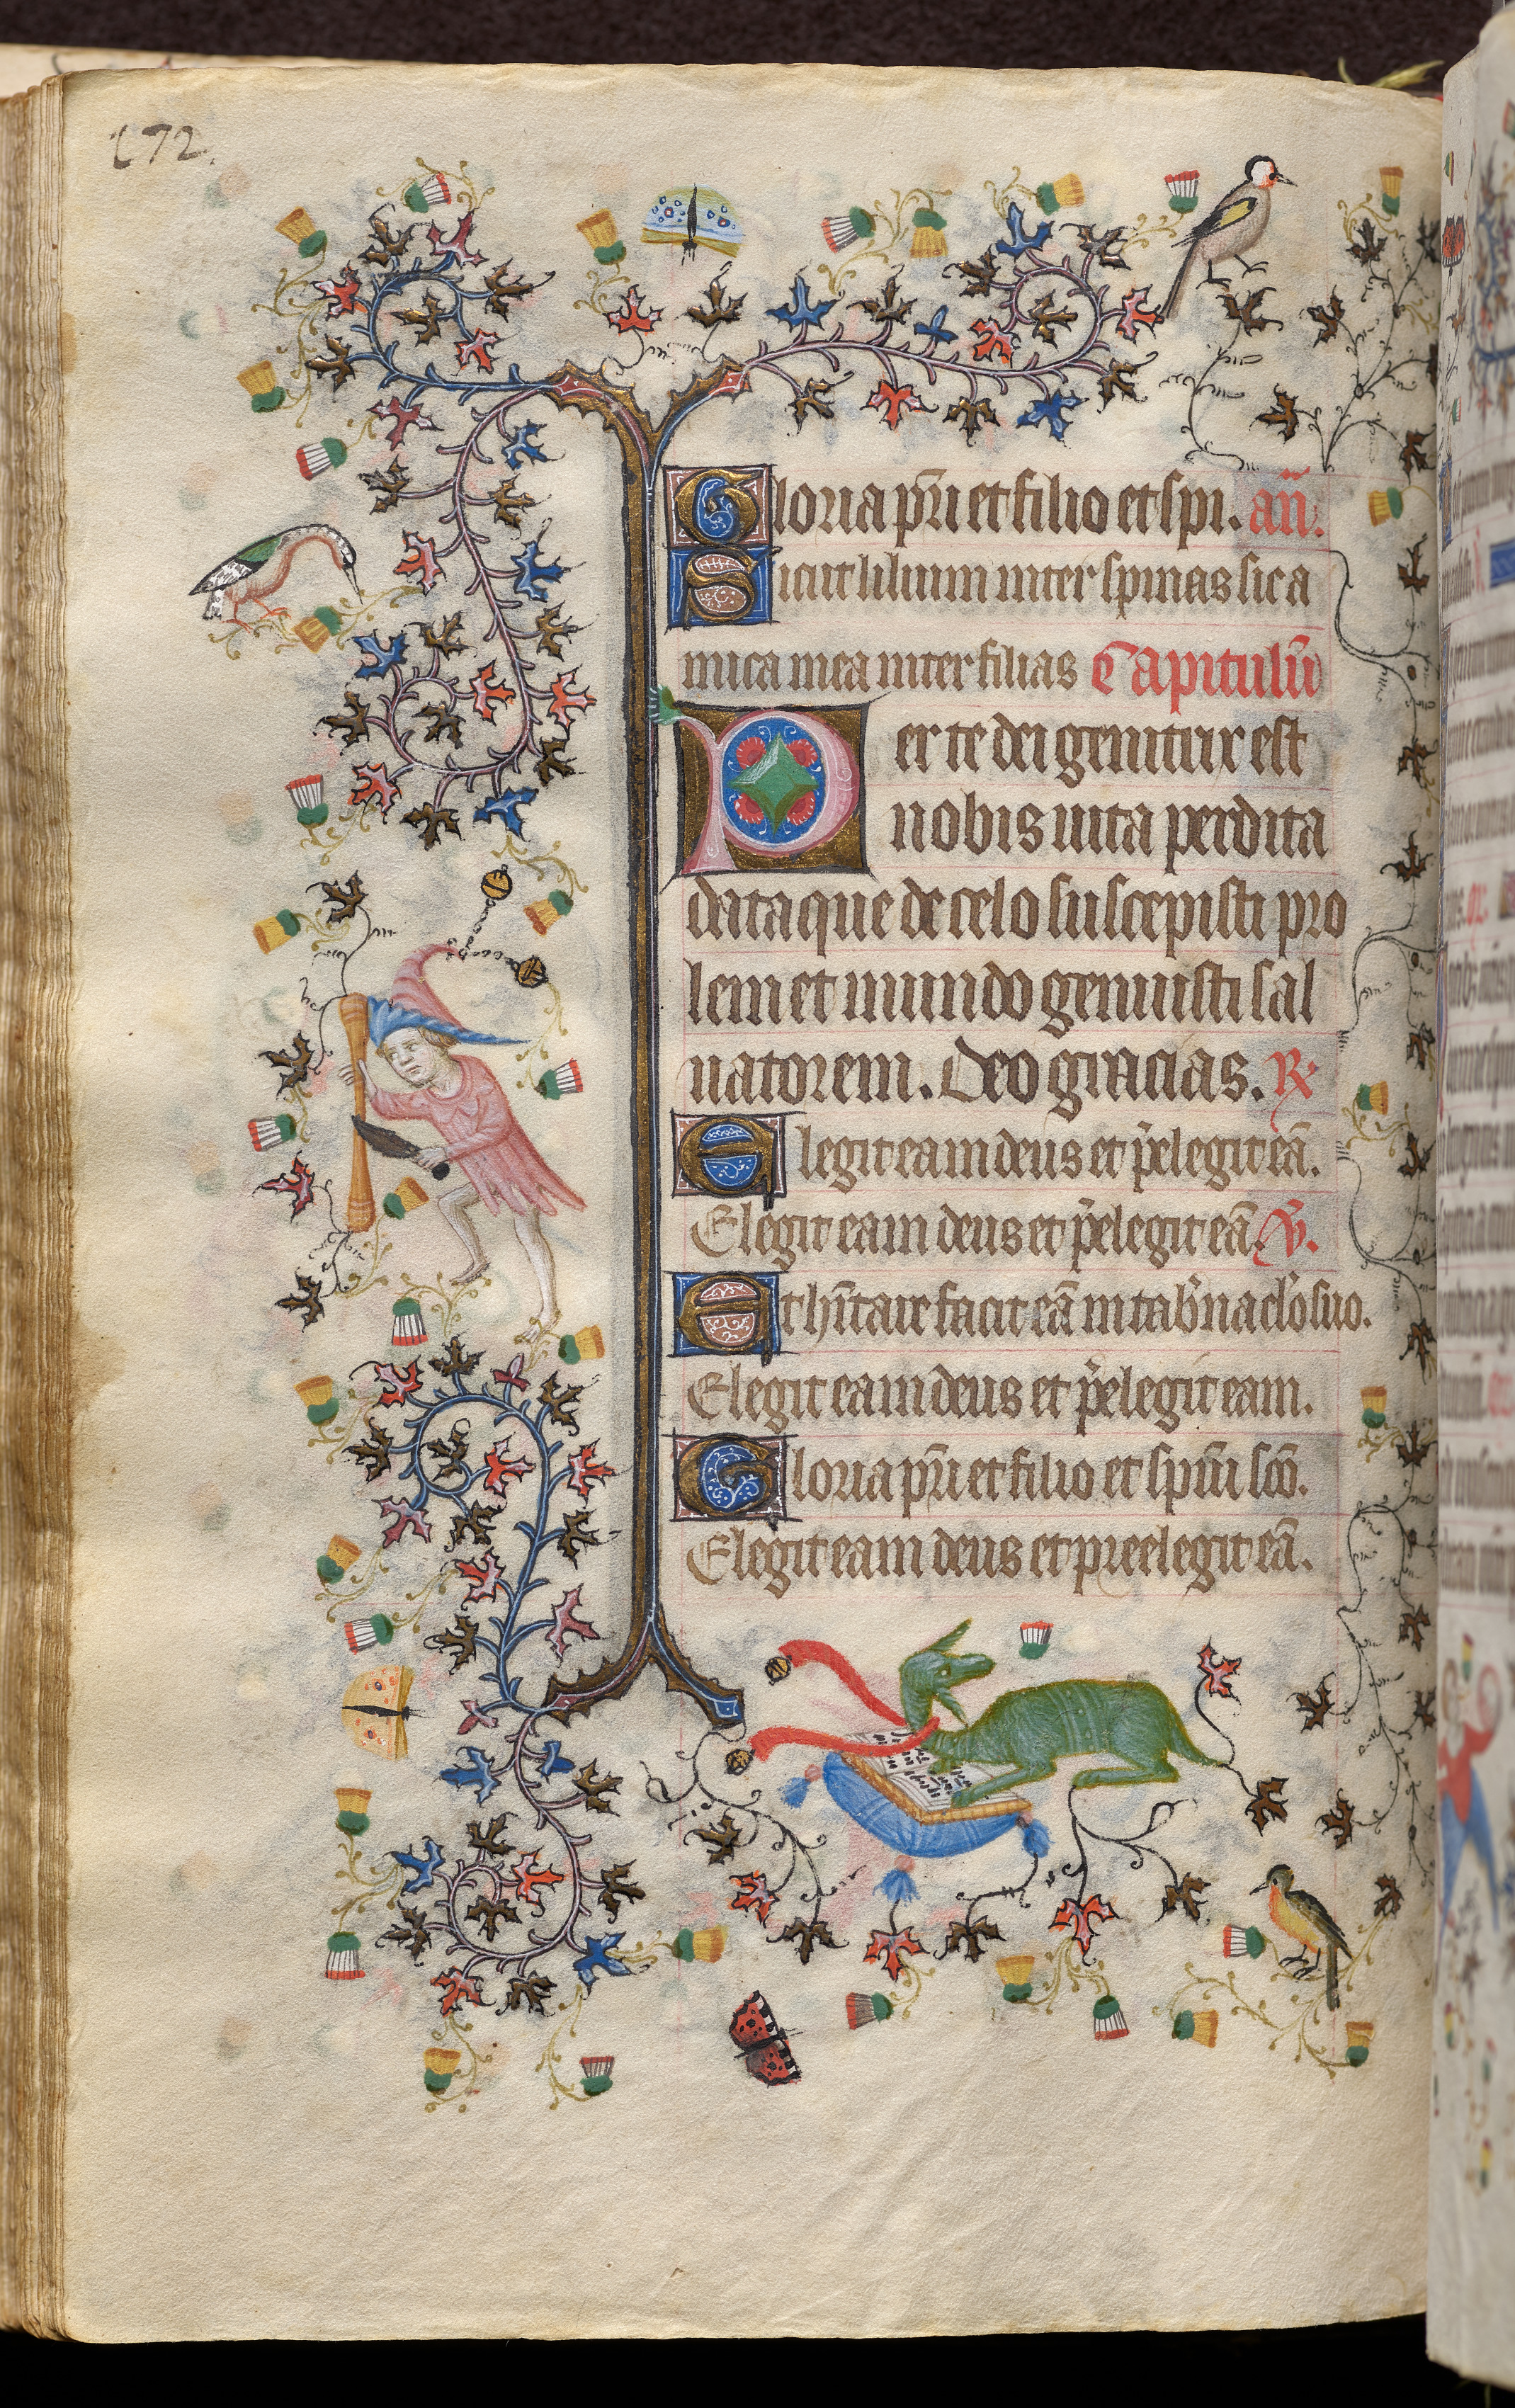 172.
Gloria pr̄i et filio et spi. añ.
Sicut lilium inter spinas sic a
mica mea inter filias Capitulū
Per te dei genitrix est
nobis uita perdita
data que de celo suscepisti pro
lem et mundo genuisti sal
uatorem. Deo gracias. ℟
Elegit eam deus et p̄elegit eā.
Elegit eam deus et p̄elegit eā. ℣.
Et hītare facit eā in tab̄naclo suo.
Elegit eam deus et p̄elegit eam.
Gloria pr̄i et filio et spūi scō.
Elegit eam deus et preelegit eā.